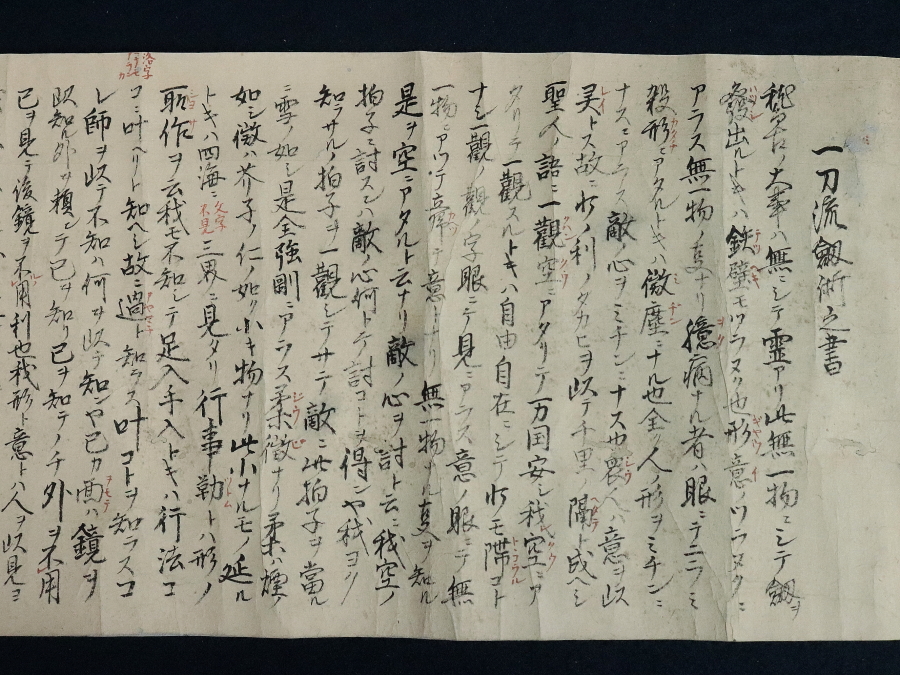 一刀流劔術之書
秘書ノ大事ハ無ニシテ霊アリ此無一物ニシテ劔ヲ
發出ルトキハ鉄壁モツラヌク也形意ノツラヌクニ
アラス無一物ノ 夌ナリ臆病ナル者ハ眼ニテニラミ
殺形ニアタルトキハ微塵ニナル也全ク人ノ形ヲミチンニ
ナスニアラス敵心ヲミチンニナス也 人ハ意ヲ以
灵トス故ニ 水ノ利ノタカヒヲ以テ千里ノ隔ト成ヘシ
聖人ノ語ニ一觀空ニアタリテ万国安シ我空ニア
タリテ一觀スルトキハ自由自在ニシテ 水モ滞コト
ナシ一觀ノ觀ノ字眼ニテ見ニアラス意ノ眼ニテ無
一物ニアツテ 意ナリ無一物ナル 夌ヲ知ル
是ヲ空ニアタルト云ナリ敵ノ心ヲ討ト云ニ我空ノ
拍子ニ討スンハ敵ノ心何トテ討コトヲ得ンヤ我ヨク
知ラサルノ拍子ヲ一觀シテサテ敵ニ此拍子ヲ當ル
ニ雪ノ如シ是全強剛ニアラス柔微ナリ柔ハ煙ノ
如シ微ハ芥子ノ仁ノ如ク小キ物ナリ此小ナルモノ延ル
トキハ四海ニ 文字不見 三界ニ見タリ行事勤トハ形ノ
所作ヲ云我モ不知シテ足入手入トキハ行法コ
コニ叶ヘリト知ヘシ故ニ過ト知ラス叶コトヲ知ラスコ
レ師ヲ以テ不知ハ何ヲ以テ知ンヤ己カ面ハ鏡ヲ
以知ル外ヲ頼ンテ己ヲ知リ己ヲ知テノチ外ヲ不用
己ヲ見テ後鏡ヲ不用利也我形ト意トハ人ヲ以見ヨ